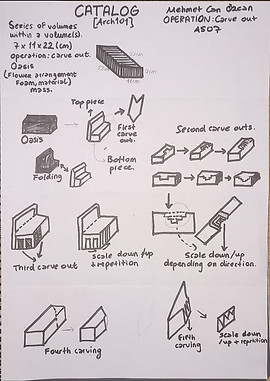 CATALOG
[Arch101]
Mehmet Can Özcan
OPERATION: Carve out
AS07
Series of volumes
within a volume(s).
7 x 11 x 22 (cm)
operation: carve out.
Oasis
(Flower arrangement
Foam, material)
mass.
Top piece
First
carve
out.
Oasis
Bottom
piece.
Folding
Second carve outs.
Third carve out
Scale down/up
+ repetition
Scale down/up
depending on direction.
Fourth carving
Fifth
carving
Scale down
/up + repetition